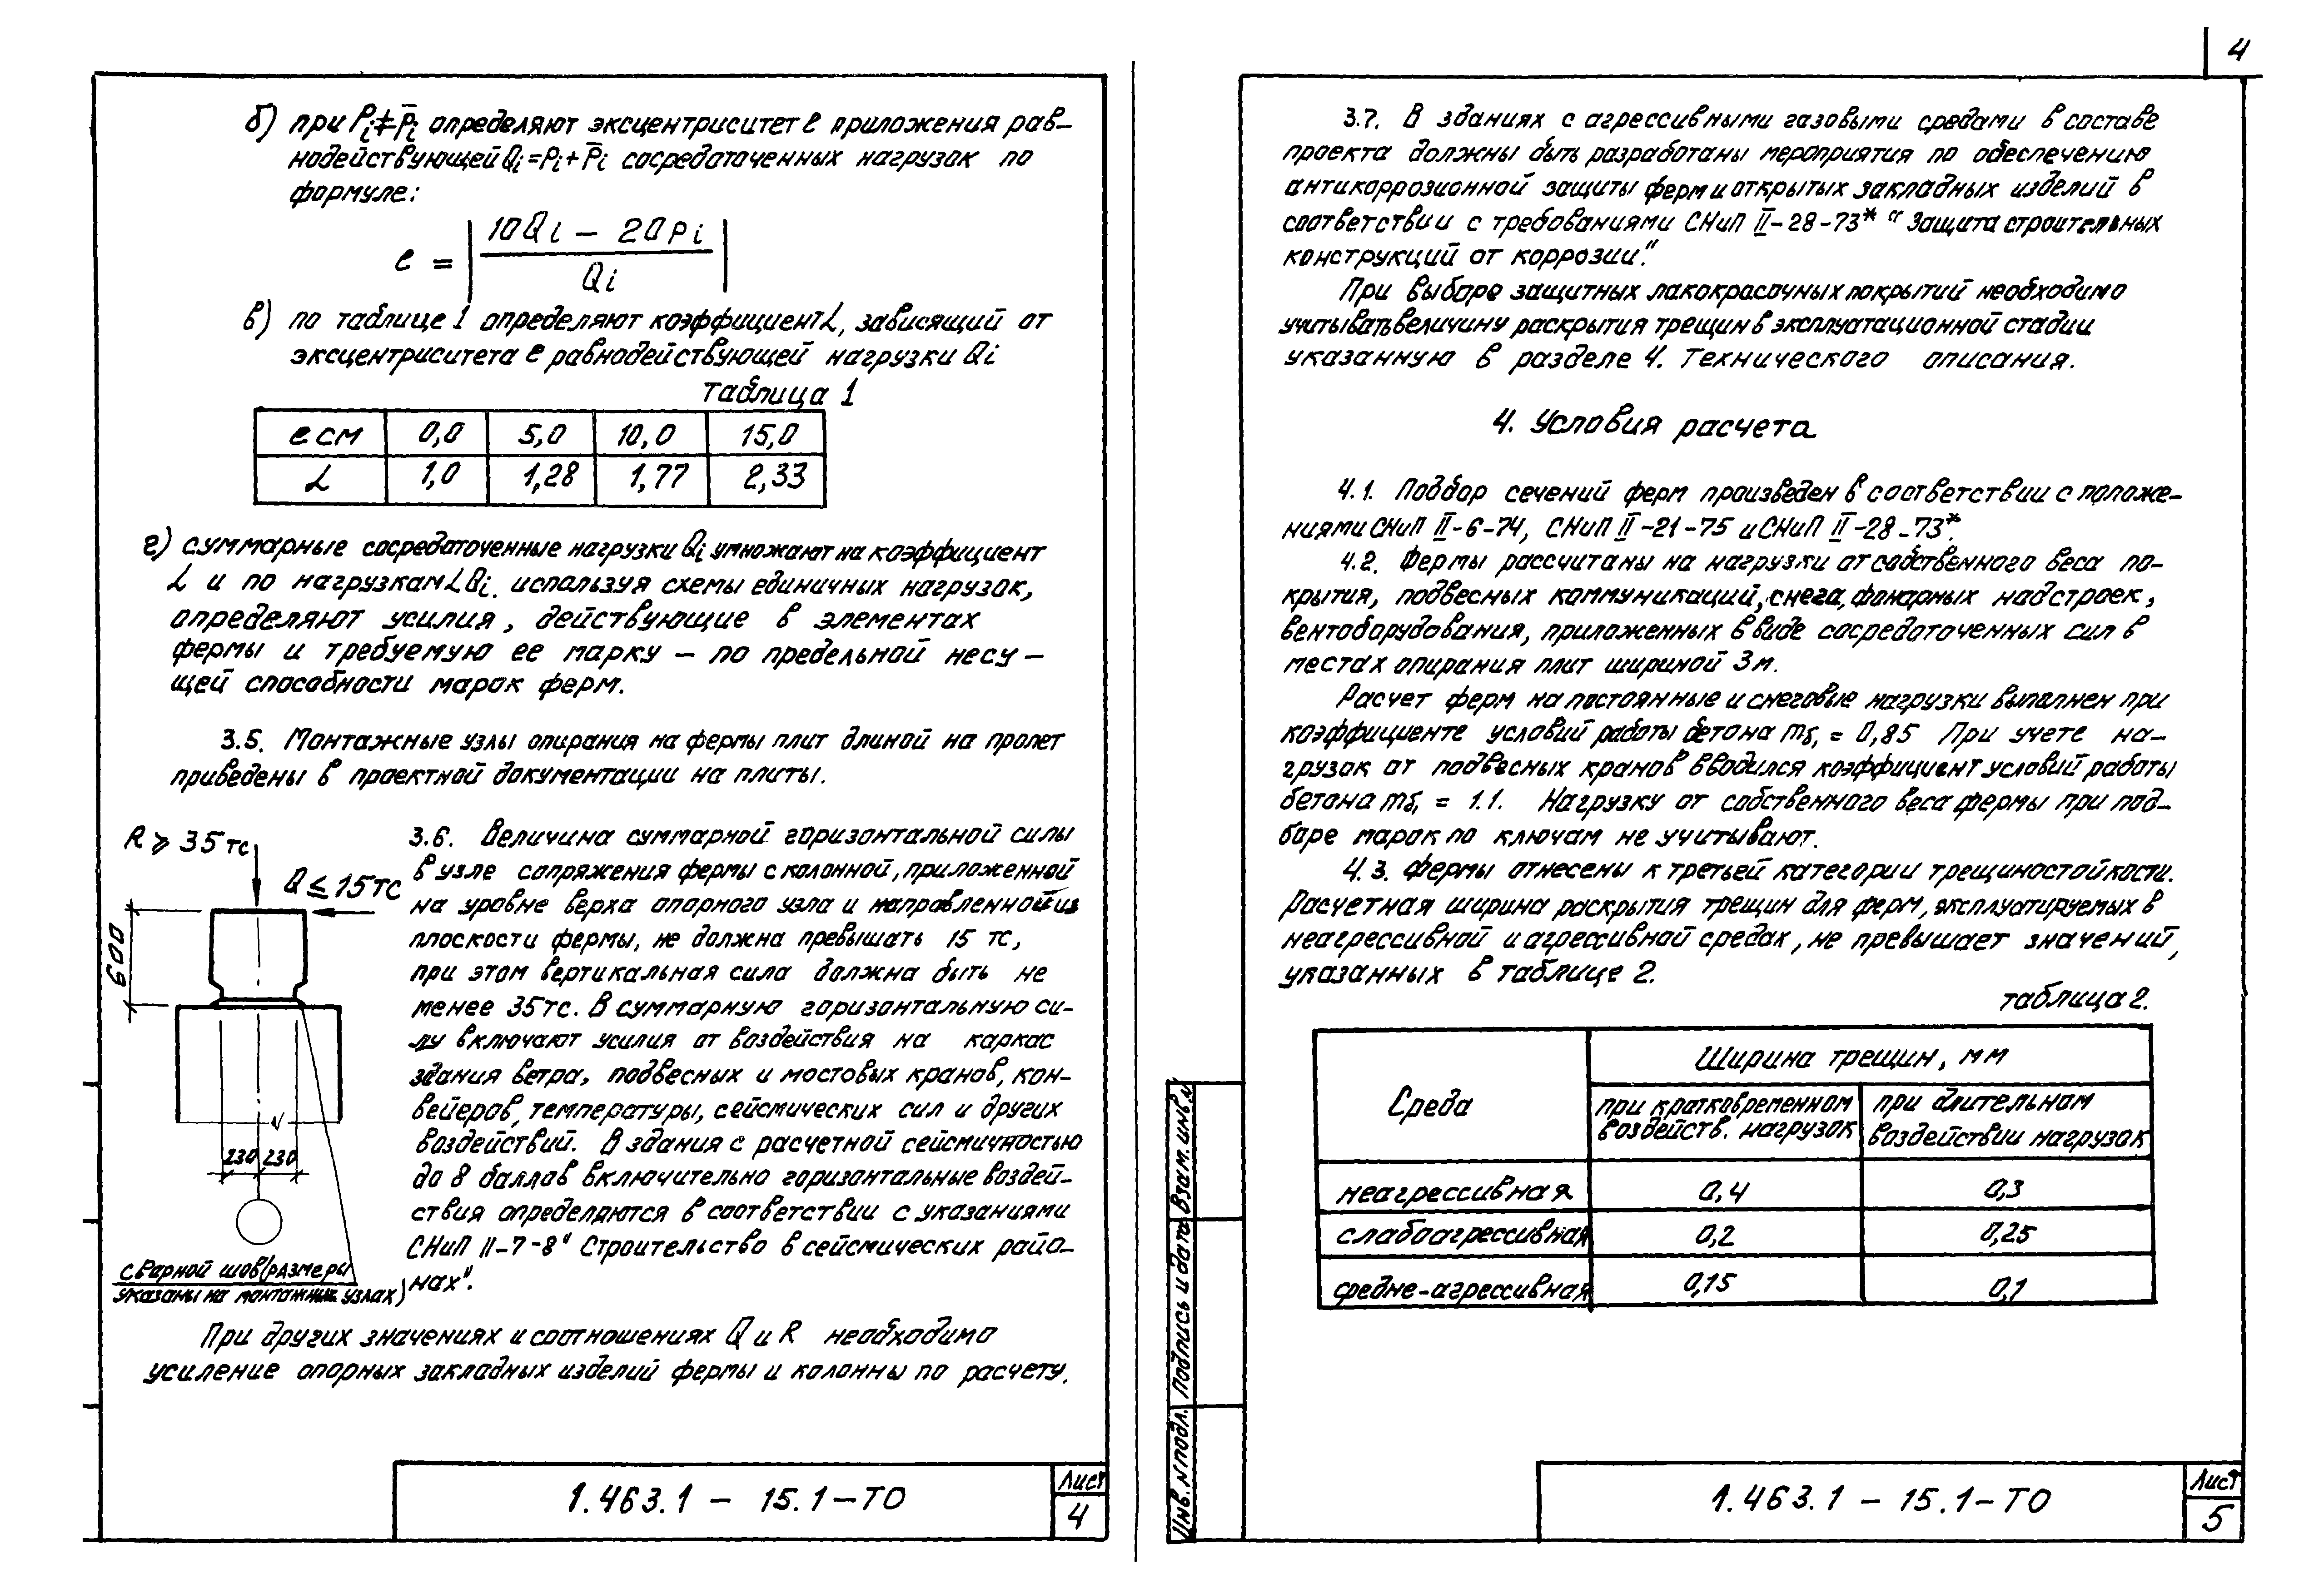 4
б) при Pi ≠ P̄i определяют эксцентриситет e приложения рав-
нодействующей Qi = Pi + P̄i сосредоточенных нагрузок по
формуле:
e = | (10Qi − 20Pi) / Qi |
в) по таблице 1 определяют коэффициент L, зависящий от
эксцентриситета e равнодействующей нагрузки Qi
Таблица 1
e см 0,0 5,0 10,0 15,0
L 1,0 1,28 1,77 2,33
г) суммарные сосредоточенные нагрузки Qi умножают на коэффициент
L и по нагрузкам LQi. используя схемы единичных нагрузок,
определяют усилия, действующие в элементах
фермы и требуемую ее марку – по предельной несу-
щей способности марок ферм.
3.5. Монтажные узлы опирания на фермы плит длиной на пролет
приведены в проектной документации на плиты.
R ⩾ 35 тс
Q ≤ 15 тс
600
230 230
сварной шов (размеры
указаны на монтажных узлах)
3.6. Величина суммарной горизонтальной силы
в узле сопряжения фермы с колонной, приложенной
на уровне верха опорного узла и направленной из
плоскости фермы, не должна превышать 15 тс,
при этом вертикальная сила должна быть не
менее 35тс. В суммарную горизонтальную си-
лу включают усилия от воздействия на каркас
здания ветра, подвесных и мостовых кранов, кон-
вейеров, температуры, сейсмических сил и других
воздействий. В здания с расчетной сейсмичностью
до 8 баллов включительно горизонтальные воздей-
ствия определяются в соответствии с указаниями
СНиП II-7-8" Строительство в сейсмических райо-
нах".
При других значениях и соотношениях Q и R необходимо
усиление опорных закладных изделий фермы и колонны по расчету.
1.463.1 – 15.1-ТО
Лист
4
3.7. В зданиях с агрессивными газовыми средами в составе
проекта должны быть разработаны мероприятия по обеспечению
антикоррозионной защиты ферм и открытых закладных изделий в
соответствии с требованиями СНиП II-28-73* "Защита строительных
конструкций от коррозии."
При выборе защитных лакокрасочных покрытий необходимо
учитывать величину раскрытия трещин в эксплуатационной стадии
указанную в разделе 4. Технического описания.
4. Условия расчета
4.1. Подбор сечений ферм произведен в соответствии с положе-
ниями СНиП II-6-74, СНиП II-21-75 и СНиП II-28-73*.
4.2. Фермы рассчитаны на нагрузки от собственного веса по-
крытия, подвесных коммуникаций, снега, фонарных надстроек,
вентоборудования, приложенных в виде сосредоточенных сил в
местах опирания плит шириной 3м.
Расчет ферм на постоянные и снеговые нагрузки выполнен при
коэффициенте условий работы бетона mб₁ = 0,85 При учете на-
грузок от подвесных кранов вводился коэффициент условий работы
бетона mб₁ = 1.1. Нагрузку от собственного веса фермы при под-
боре марок по ключам не учитывают.
4.3. Фермы отнесены к третьей категории трещиностойкости.
Расчетная ширина раскрытия трещин для ферм, эксплуатируемых в
неагрессивной и агрессивной средах, не превышает значений,
указанных в таблице 2.
таблица 2.
Среда
Ширина трещин, мм
при кратковременном
воздейств. нагрузок
при длительном
воздействии нагрузок
неагрессивная 0,4 0,3
слабоагрессивная 0,2 0,25
средне-агрессивная 0,15 0,1
Инв. N подл. Подпись и дата Взам. инв. N
1.463.1 – 15.1-ТО
Лист
5